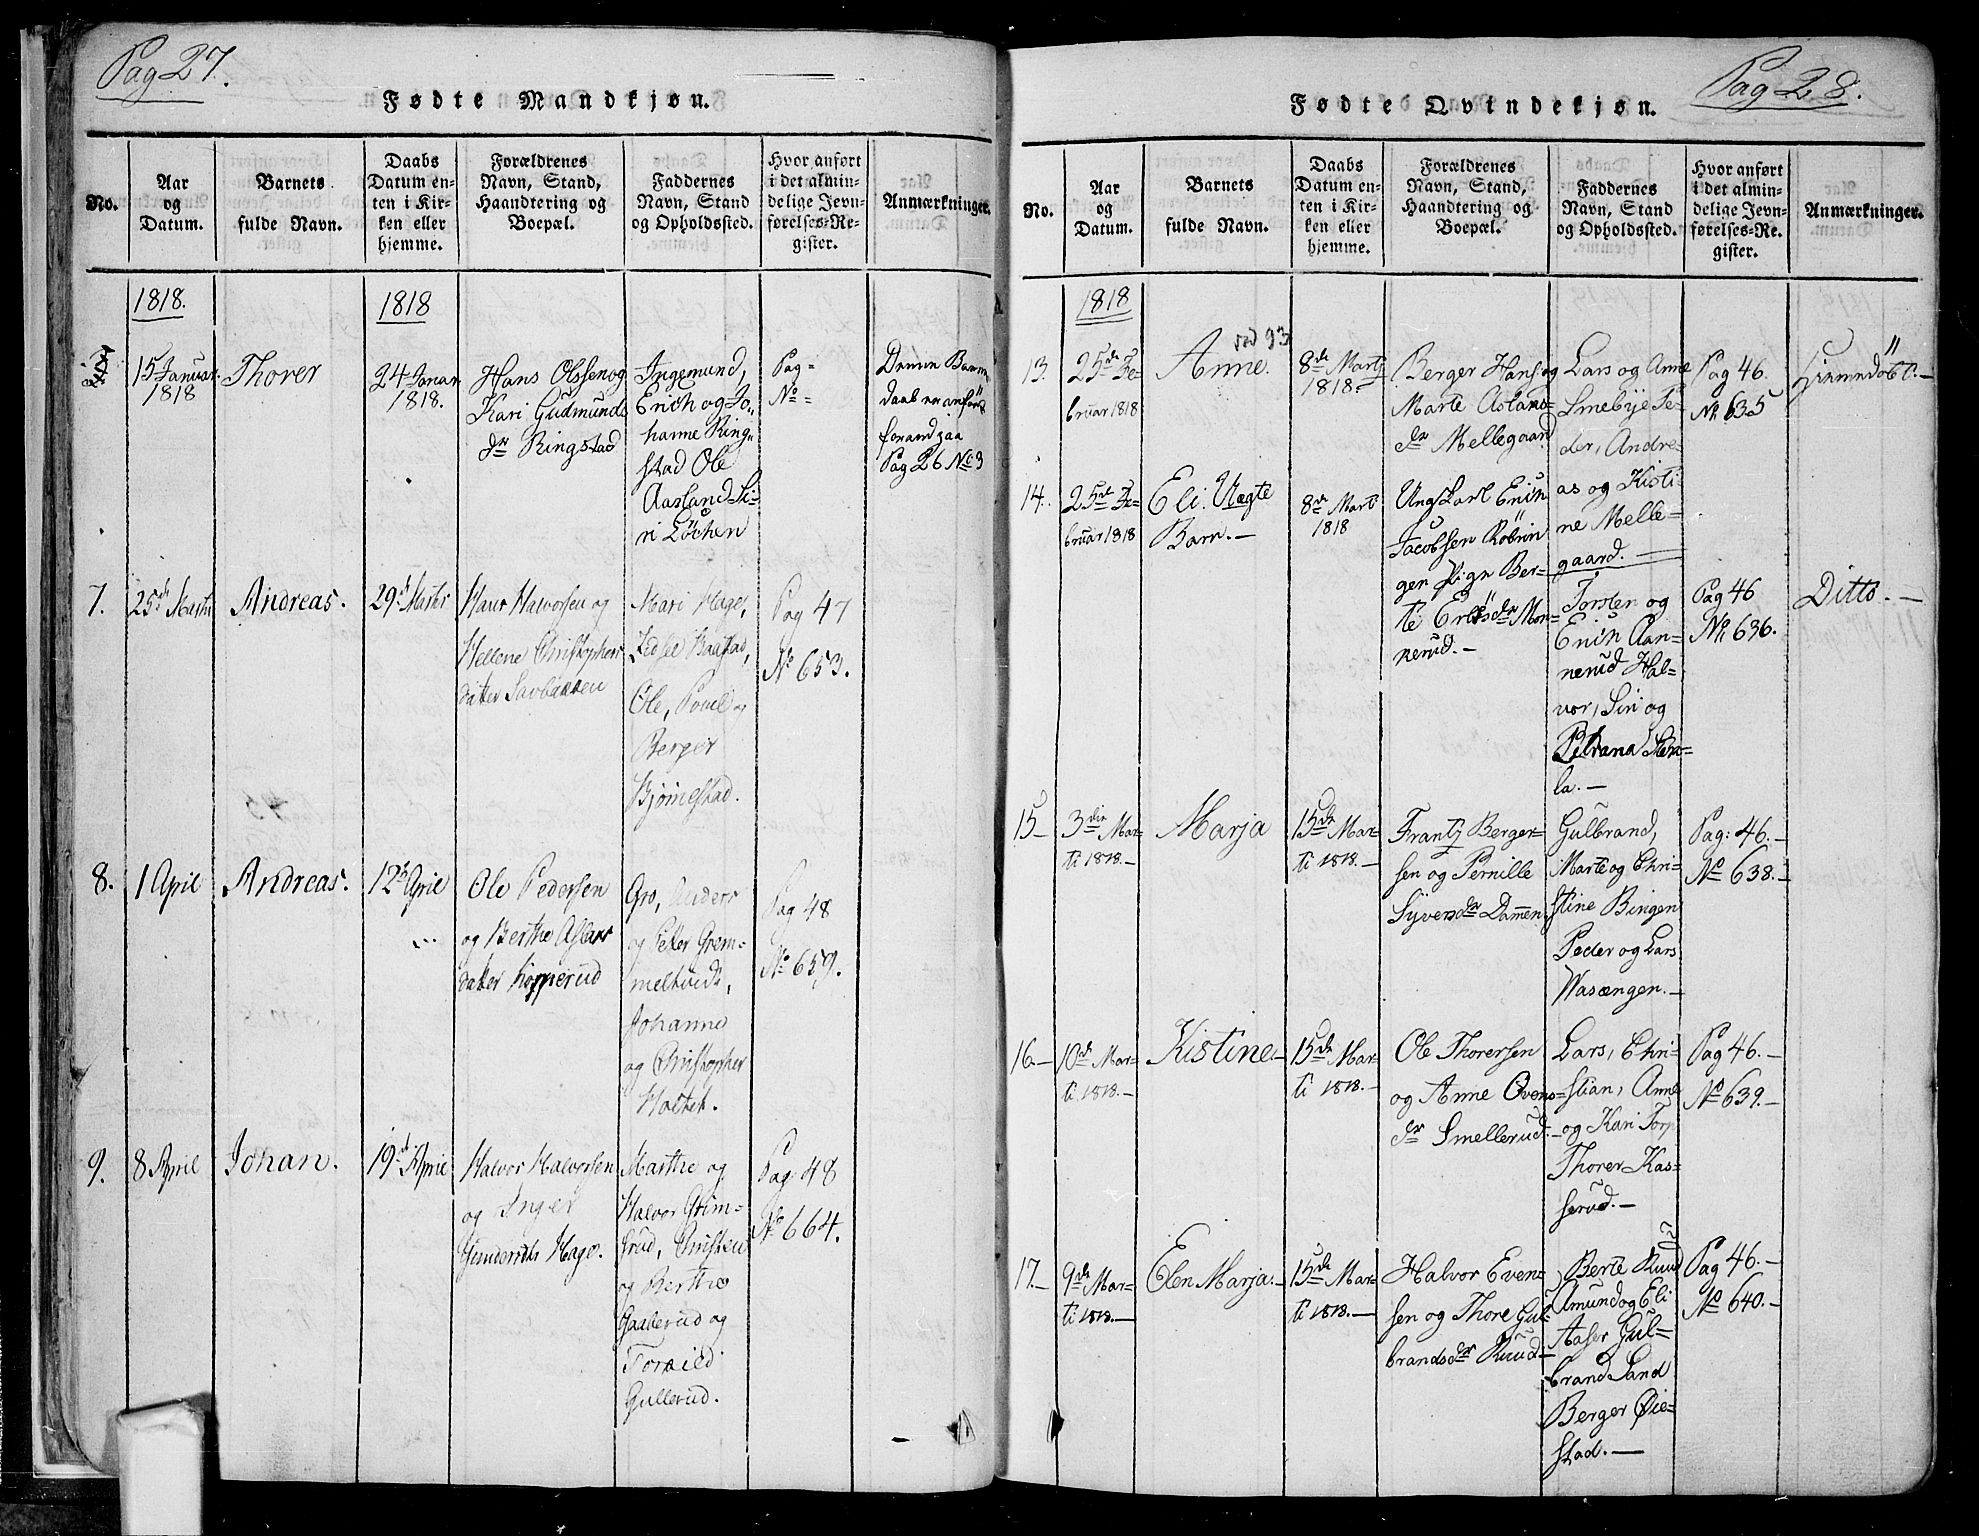 Pag 27.
Fødte Mandkjøn.
No.
Aar
og
Datum.
Barnets
fulde Navn.
Daabs
Datum en-
ten i Kir-
ken eller
hjemme.
Forældrenes
Navn, Stand,
Haandtering og
Boepæl.
Faddernes
Navn, Stand
og Opholdssted.
Hvor anført
i det almin-
delige Jevn-
førelses-Re-
gister.
Anmærkninger.
1818.
1818
15 Januar
1818
Thorer
24 Janar
1818.
Hans Olssen og
Kari Gudmunds
dr Ringstad
Ingemund,
Erich og Jo,,
hanne Ring,,
stad Ole
Aasland Si-
ri Löchen
Pag =
No =
Denne Barne
daab er anfört
forand paa
Pag 26 No 3
7.
25de Martii
Andreas.
29d Martii
Hans Halvorsen og
Hellene Christophers
datter
Mari Hage,
Baastad,
Ole, Poul og
Berger
Bjørnestad.
Pag 47
No 653.
8.
1 April
Andreas.
12te April
Ole Pedersen
og Berthe Aslaks
datter Kopperud
Gro, Anders
og Peder Grem-
meltvedt,
Johanne
og Christopher
Holtet.
Pag 48
No 659.
9.
8 April
Johan.
19d April
Halvor Halvorsen
og Inger
Gundersdtr Hage.
Marthe og
Halvor Grim-
srud, Christen
og Berthe
Gaalerud og
Toreild
Gullerud.
Pag 48
No 664.
Pag 28.
Fødte Qvindekjøn.
No.
Aar
og
Datum.
Barnets
fulde Navn.
Daabs
Datum en-
ten i Kir-
ken eller
hjemme.
Forældrenes
Navn, Stand,
Haandtering og
Boepæl.
Faddernes
Navn, Stand
og Opholdssted.
Hvor anført
i det almin-
delige Jevn-
førelses-Re-
gister.
Anmærkninger.
1818
13.
25de Fe-
bruar 1818
Anne.
8de Marti
1818.
Berger Hans og
Marte Aslaks-
dr Mellegaard
Lars og Anne
Smebye Pe-
der, Andre-
as og Kisti-
ne Melle-
gaard.
Pag 46.
No 635
Hiemmdöbt.-
14.
25de Fe-
bruar 1818
Eli. Uægte
Barn.-
8de Marti
1818
Ungkarl Erich
Jacobsen
gen Pige Ber-
te Eriksdr Mon-
nerud.-
Torsten og
Erich Aan-
nerud Hal-
vor, Siri og
la.-
Pag 46
No 636.
Ditto.-
15-
3die Mar-
ti 1818.-
Marja
15de Mar-
ti 1818.-
Frantz Berger-
sen og Pernille
Syversdr Dammen
Gulbrand,
Marte og Chri-
stine Bingen
Peder og Lars
Wasængen.-
Pag: 46.-
No 638.-
16.-
10de Mar-
ti 1818.-
Kistine.-
15de Mar-
ti 1818.-
Ole Thorersen
og Anne Övens-
dr Smellerud.-
Lars, Chri-
stian, Anne
og Kari Torp
Thorer Kas-
serud.-
Pag 46.-
No 639.-
17.-
9de Mar-
ti 1818.-
Elen Marja.-
15de Mar-
ti 1818.-
Halvor Even-
sen og Thore Gul-
brandsdr Ruud-
Berte Ruud
Amund og Eli
Aaser Gul-
brand Sand
Berger Öie-
stad.-
Pag 46.-
No 640.-